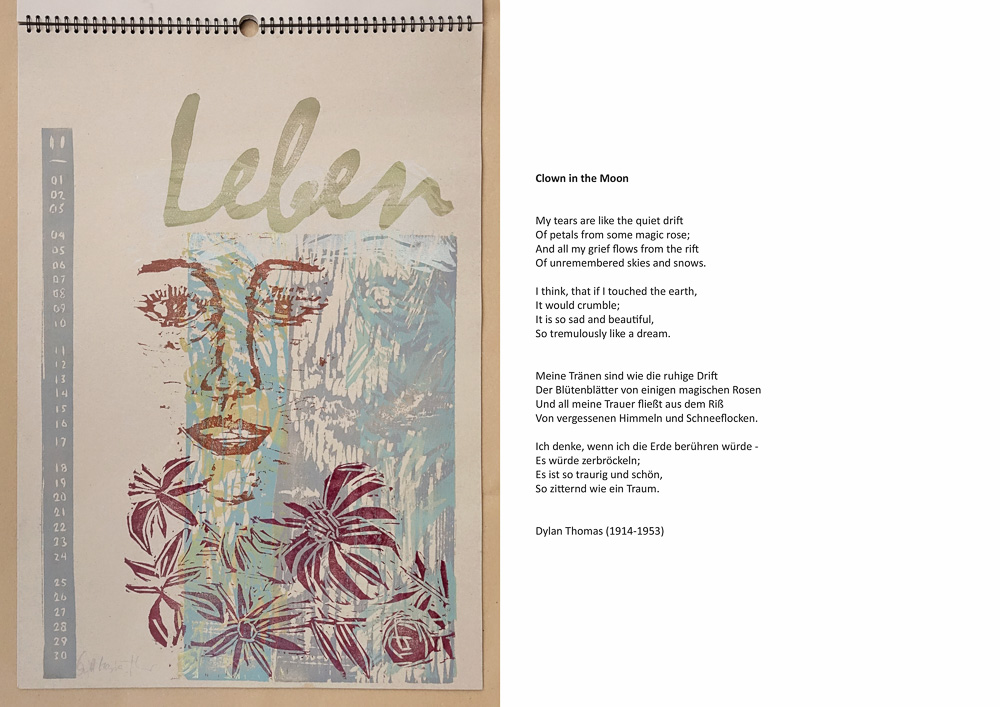 Leben
11
01
02
03
04
05
06
07
08
09
10
11
12
13
14
15
16
17
18
19
20
21
22
23
24
25
26
27
28
29
30
Clown in the Moon
My tears are like the quiet drift
Of petals from some magic rose;
And all my grief flows from the rift
Of unremembered skies and snows.
I think, that if I touched the earth,
It would crumble;
It is so sad and beautiful,
So tremulously like a dream.
Meine Tränen sind wie die ruhige Drift
Der Blütenblätter von einigen magischen Rosen
Und all meine Trauer fließt aus dem Riß
Von vergessenen Himmeln und Schneeflocken.
Ich denke, wenn ich die Erde berühren würde -
Es würde zerbröckeln;
Es ist so traurig und schön,
So zitternd wie ein Traum.
Dylan Thomas (1914-1953)